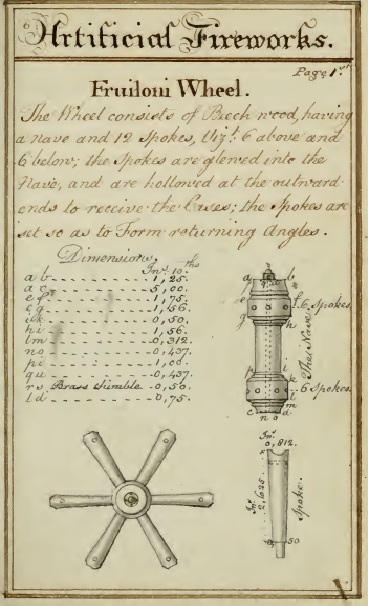 Artificial Fireworks.
Page 1st
Fruiloni Wheel.
The Wheel consists of Beech wood, having
a Nave and 12 Spokes, Vizt. 6 above and
6 below; the Spokes are glewed into the
Nave, and are hollowed at the outward
ends to receive the Cases; the Spokes are
set so as to Form returning Angles.
Dimensions,
Ins. 10ths
a b 1,25.
a c 5,00.
e f 1,75.
e g 1,56.
i k 0,50.
h i 1,56.
l m 0,312.
n o 0,437.
p i 1,00.
q u 0,437.
r s Brass thimble 0,50.
l d 0,75.
a b
e f 6, Spokes.
g h
The Nave.
p i
k 6 Spokes.
l
m
c n o d
Ins.
0,812.
Ins.
2,625
Spoke.
50